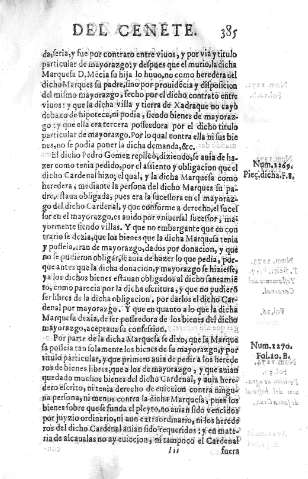 DEL CENETE. 385
da, seria, y fue por contrato entre viuos, y por via y titulo
particular de mayorazgo: y despues que el murio, la dicha
Marquesa D. Mēcia su hija lo huuo, no como heredera del
dicho Marques su padre, sino por prouidēcia y disposicion
del mismo mayorazgo, fecho por el dicho contrato entre
viuos: y que la dicha villa y tierra de Xadraque no cayò
debaxo de hipoteca, ni podia, siendo bienes de mayoraz-
go: y que ella era tercera posseedora por el dicho titulo
particular de mayorazgo. Por lo qual contra ella ni sus bie-
nes, no se podia poner la dicha demanda, &c.
El dicho Pedro Gomez replicò, diziendo, se auia de ha-
zer como tenia pedido, por el assiento y obligacion que el
dicho Cardenal hizo, el qual, y la dicha Marquesa como
heredera, mediante la persona del dicho Marques su pa-
dre, estaua obligada, pues era la sucessora en el mayoraz-
go del dicho Cardenal, y que conforme a derecho, el sucessor
en el mayorazgo, es auido por vniuersal sucessor, ma-
yormente siendo villas. Y que no embargante que en con-
trario se dezia, que los bienes que la dicha Marquesa tenia
y posseia, eran de mayorazgo, dados por donacion, y que
no se pudieron obligar, se auia de hazer lo que pedia, porque
antes que la dicha donacion, y mayorazgo se hiziesse,
ya los dichos bienes estauan obligados al dicho saneamiē-
to, como parecia por la dicha escritura, y que no pudierō
ser libres de la dicha obligacion, por darlos el dicho Car-
denal por mayorazgo. Y que en quanto a lo que la dicha
Marquesa dezia, de ser posseedora de los bienes del dicho
mayorazgo, aceptaua su confession.
Por parte de la dicha Marquesa se dixo, que la Marquesa
posseia tan solamente los bienes de mayorazgo; y por
titulo particular, y que primero auia de pedir a los herede-
ros de bienes libres, que a los de mayorazgo, y que auian
quedado muchos bienes del dicho Cardenal, y auia here-
dero escrito, ni tenia derecho de euiccion contra ningu-
na persona, ni menos contra la dicha Marquesa; pues los
bienes sobre que se funda el pleyto, no auian sido vencidos
por juyzio ordinario, ni aun extraordinario, ni los herede-
ros del dicho Cardenal auian sido requeridos: y en mate-
ria de alcaualas no ay euiccion, ni tampoco el Cardenal
Iii fuera
Num. 1269.
Pieç. dicha, F. 8.
Num. 1270.
Folio. 8.